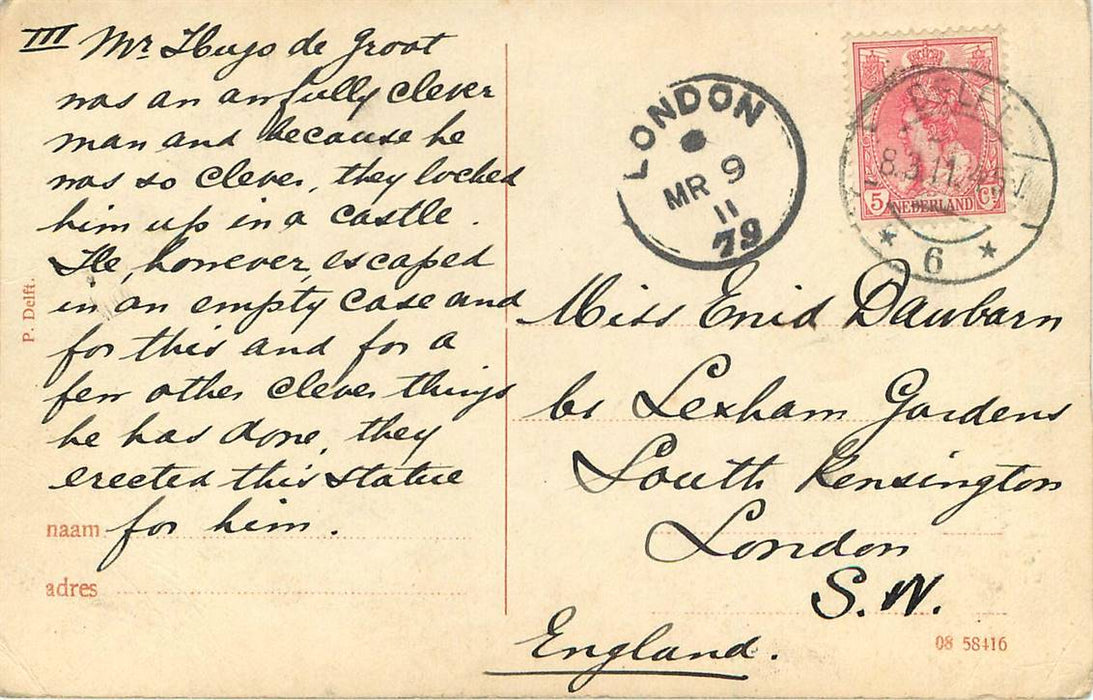 III Mr Hugo de Groot
was an awfully clever
man and because he
was so clever, they locked
him up in a castle.
He, however, escaped
in an empty case and
for this and for a
few other clever things
he has done, they
erected this statue
for him.
naam
adres
P. Delft.
LONDON
MR 9
11
79
DELFT
8.3.11.
6
5 NEDERLAND Ct
Miss Enid Dawbarn
Lexham Gardens
South Kensington
London
S.W.
England.
08 58416